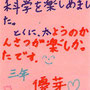 科学を楽しめまし
た。とくに、太ようのか
んさつが楽しかっ
たです。
三年
優芽